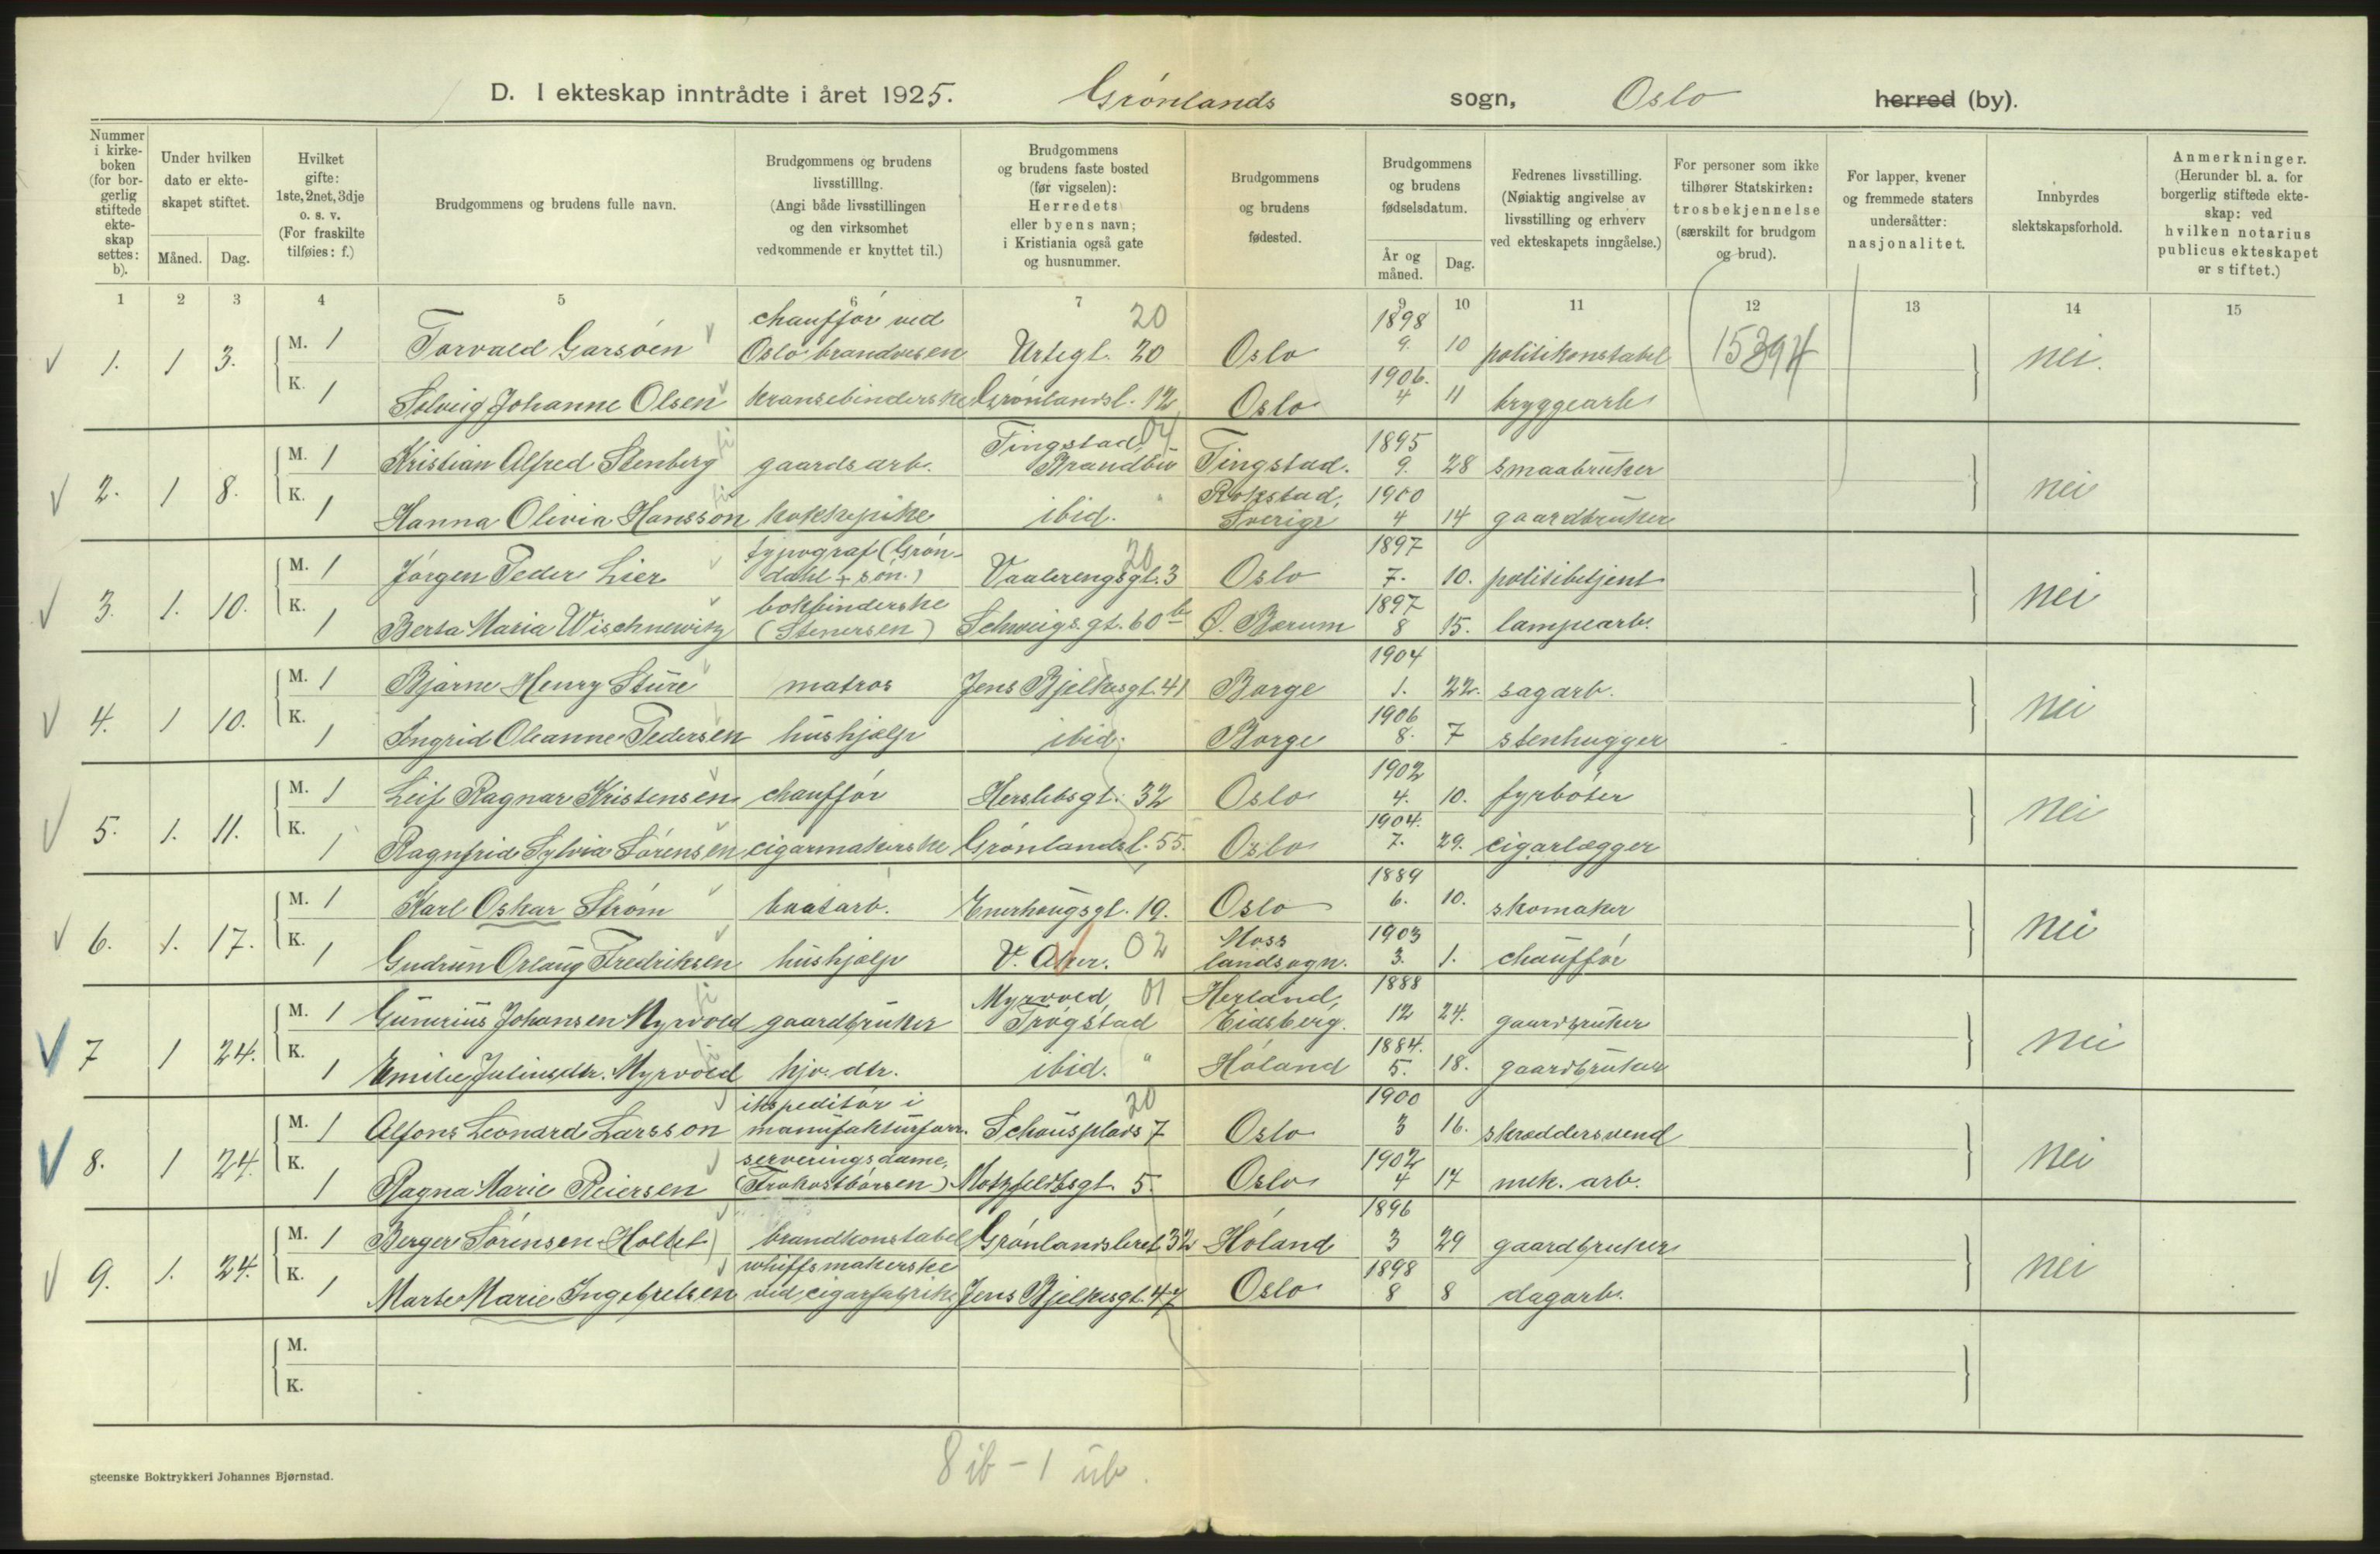 D. I ekteskap inntrådte i året 1925. Grønlands sogn, Oslo herred (by).
Nummer i kirkeboken (for borgerlig stiftede ekteskap settes: b).
Under hvilken dato er ekteskapet stiftet.
Måned. Dag.
Hvilket gifte: 1ste, 2net, 3dje o. s. v. (For fraskilte tilføies: f.)
Brudgommens og brudens fulle navn.
Brudgommens og brudens livsstilling. (Angi både livsstillingen og den virksomhet vedkommende er knyttet til.)
Brudgommens og brudens faste bosted (før vigselen): Herredets eller byens navn; i Kristiania også gate og husnummer.
Brudgommens og brudens fødested.
Brudgommens og brudens fødselsdatum.
År og måned. Dag.
Fedrenes livsstilling. (Nøiaktig angivelse av livsstilling og erhverv ved ekteskapets inngåelse.)
For personer som ikke tilhører Statskirken: trosbekjennelse (særskilt for brudgom og brud).
For lapper, kvener og fremmede staters undersåtter: nasjonalitet.
Innbyrdes slektskapsforhold.
Anmerkninger. (Herunder bl. a. for borgerlig stiftede ekteskap: ved hvilken notarius publicus ekteskapet er stiftet.)
1 2 3 4 5 6 7 8 9 10 11 12 13 14 15
1. 1 3. M. 1 Torvald Garsøen chauffør ved Oslo brandvesen Urtegt. 20 20 Oslo 1898 9. 10 politikonstabel 15394 nei.
K. 1 Solveig Johanne Olsen kransebinderske Grønlandsl. 12 Oslo 1906. 4 11 bryggearb.
2. 1 8. M. 1 Kristian Alfred Stenberg gaardsarb. Tingstad, Brandbu 04 Tingstad. 1895 9. 28 smaabruker nei
K. 1 Hanna Olivia Hansson kokkepike ibid. Rokstad, Sverige 1900 4 14 gaardbruker
3. 1. 10. M. 1 Jørgen Peder Lier typograf (Grøndahl + søn.) Vaalerengsgt. 3 20 Oslo 1897 7. 10. politibetjent nei
K. 1 Berta Maria Wischnewitz bokbinderske (Stenersen) Schweigs. gt. 60 b Ø. Bærum 1897 8 15. lampearb.
4. 1 10. M. 1 Bjarne Henry Sture matros Jens Bjelkesgt. 41 Borge 1904 1. 22. sagarb. nei
K. 1 Ingrid Oleanne Pedersen hushjælp ibid. Borge 1906 8. 7 stenhugger
5. 1. 11. M. 1 Leif Ragnar Kristensen chauffør Herslebsgt. 32 Oslo 1902 4. 10. fyrbøter nei
K. 1 Ragnfrid Sylvia Sørensen cigarmakerske Grønlandsl. 55. Oslo 1904. 7. 29. cigarlægger
6. 1. 17. M. 1 Karl Oskar Strøm baatarb. Enerhaugsgt. 19. Oslo 1889 6. 10. skomaker nei
K. 1 Gudrun Orlaug Fredriksen hushjælp V. Aker. 02 Moss landsogn. 1903 3. 1. chauffør
7 1 24. M. 1 Gunerius Johansen Myrvold gaardbruker Myrvold, Trøgstad 01 Herland, Eidsberg. 1888 12 24. gaardbruker nei
K. 1 Emilie Juliusdtr. Myrvold hjv. dtr. ibid. " Høland 1884. 5. 18. gaardbruker
8. 1 24. M. 1 Alfons Leonard Larsson ekspeditør i manufakturforr. Schousplads 7 20 Oslo 1900 3 16. skræddersvend nei
K. 1 Ragna Marie Reiersen serveringsdame, (Frokostbørsen) Motzfeldtsgt. 5. Oslo 1902 4 17 mek. arb.
9. 1. 24. M. 1 Berger Sørensen Holtet brandkonstabel Grønlandsleret 32 Høland 1896 3 29 gaardbruker nei
K. 1 Marte Marie Ingebretsen whiffsmakerske ved cigarfabrikk Jens Bjelkesgt. 47 Oslo 1898 8 8 dagarb.
M.
K.
8 ib - 1 ub.
gteenske Boktrykkeri Johannes Bjørnstad.